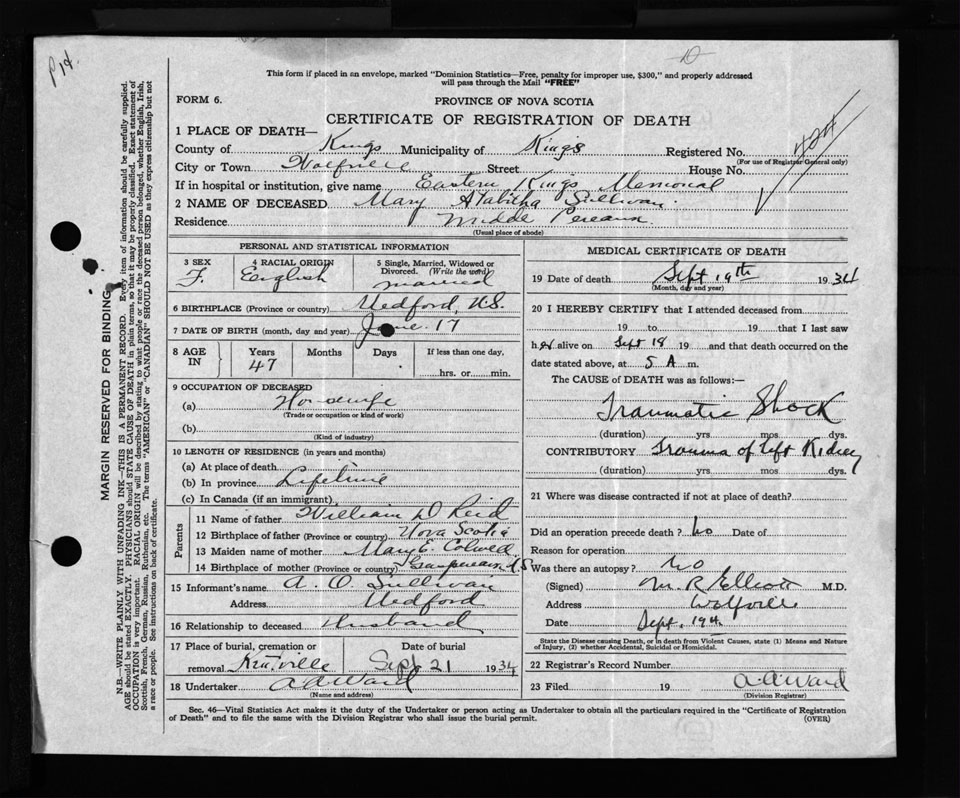 P 14.
This form if placed in an envelope, marked "Dominion Statistics—Free, penalty for improper use, $300," and properly addressed
will pass through the Mail "FREE"
FORM 6.
PROVINCE OF NOVA SCOTIA
CERTIFICATE OF REGISTRATION OF DEATH
1 PLACE OF DEATH—
County of Kings Municipality of Kings Registered No.
(For use of Registrar General only)
City or Town Wolfville Street House No.
If in hospital or institution, give name Eastern Kings Memorial
2 NAME OF DECEASED Mary Atabitha Sullivan
Residence Middle Pereaux
(Usual place of abode)
PERSONAL AND STATISTICAL INFORMATION
3 SEX F.
4 RACIAL ORIGIN English
5 Single, Married, Widowed or Divorced. (Write the word) married
6 BIRTHPLACE (Province or country) Medford, N.S.
7 DATE OF BIRTH (month, day and year) June 17
8 AGE IN Years 47 Months Days If less than one day, hrs. or min.
9 OCCUPATION OF DECEASED
(a) Housewife
(Trade or occupation or kind of work)
(b)
(Kind of industry)
10 LENGTH OF RESIDENCE (in years and months)
(a) At place of death
(b) In province Lifetime
(c) In Canada (if an immigrant)
Parents
11 Name of father William D Reid
12 Birthplace of father (Province or country) Nova Scotia
13 Maiden name of mother Mary E. Colwell
14 Birthplace of mother (Province or country) N.S
15 Informant's name A. O. Sullivan
Address Medford
16 Relationship to deceased Husband
17 Place of burial, cremation or removal Kentville
Date of burial Sept 21 1934
18 Undertaker A A Ward
(Name and address)
MEDICAL CERTIFICATE OF DEATH
19 Date of death Sept 19th 1934
(Month, day and year)
20 I HEREBY CERTIFY that I attended deceased from
19 to 19 that I last saw
her alive on Sept 18 19 and that death occurred on the
date stated above, at 5 A m.
The CAUSE of DEATH was as follows:—
Traumatic Shock
(duration) yrs. mos. dys.
CONTRIBUTORY Trauma of left Kidney
(duration) yrs. mos. dys.
21 Where was disease contracted if not at place of death?
Did an operation precede death? No Date of
Reason for operation
Was there an autopsy? No
(Signed) M. R. Elliott M.D.
Address Wolfville
Date Sept. 19th
State the Disease causing Death, or in death from Violent Causes, state (1) Means and Nature
of Injury, (2) whether Accidental, Suicidal or Homicidal.
22 Registrar's Record Number
23 Filed 19 A. A. Ward
(Division Registrar)
Sec. 46—Vital Statistics Act makes it the duty of the Undertaker or person acting as Undertaker to obtain all the particulars required in the "Certificate of Registration
of Death" and to file the same with the Division Registrar who shall issue the burial permit. (OVER)
MARGIN RESERVED FOR BINDING
N.B.—WRITE PLAINLY WITH UNFADING INK—THIS IS A PERMANENT RECORD. Every item of information should be carefully supplied.
AGE should be stated EXACTLY. PHYSICIANS should STATE CAUSE OF DEATH in plain terms, so that it may be properly classified. Exact statement of
OCCUPATION is very important. RACIAL ORIGIN will be described by stating to what people or race the deceased person belonged, whether English, Irish,
Scottish, French, German, Russian, Ruthenian, etc. The terms "AMERICAN" or "CANADIAN" SHOULD NOT BE USED as they express citizenship but not
a race or people. See instructions on back of certificate.